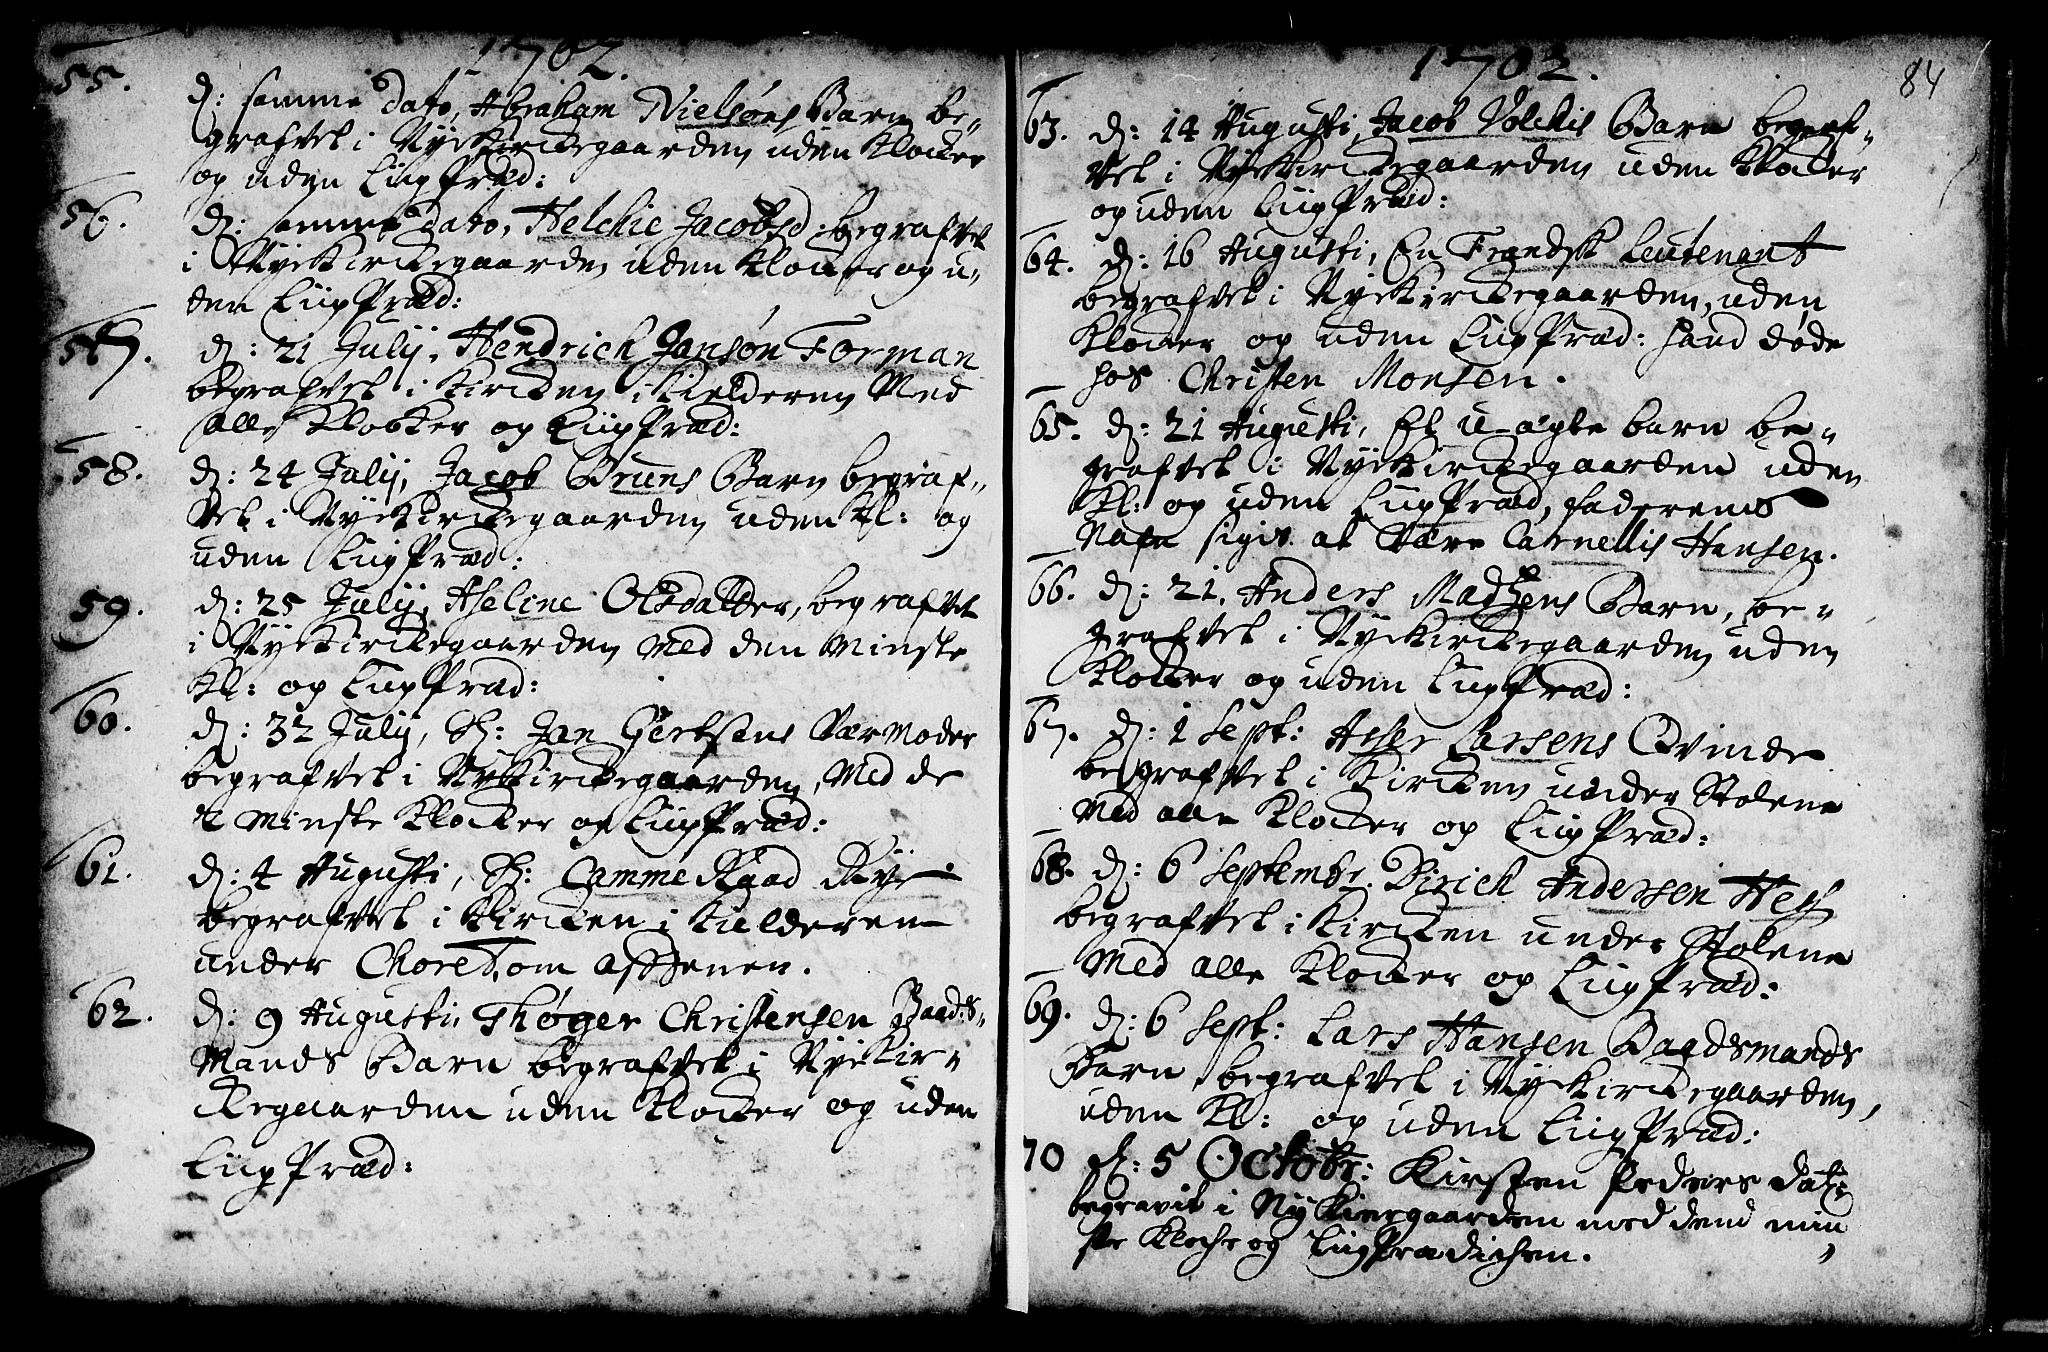 1702.
55. d: samme dato, Abraham Nielsøns Barn be-
grafvet i Nyekirckegaarden uden Klocker
og uden LiigPræd:
56. d: samme dato, Helchie Jacobsd: begrafvet
i Nyekirckegaarden uden Klocker og u-
den LiigPræd:
57. d: 21 Julij, Hendrich Jansøn Forman
begrafvet i Kircken i Kielderen Med
alle Klocker og LiigPræd:
58. d: 24 Julij, Jacob Bruns Barn begraf-
vet i Nyekirckegaarden uden Kl: og
uden LiigPræd:
59. d: 25 Julij, Aseline Olsdatter, begrafvet
i Nyekirckegaarden Med den Minste
Kl: og LiigPræd:
60. d: 32 Julij, Sr: Jan Gertsens Værmoder
begrafvet i Nyekirckegaarden, Med de
2 Minste Klocker og LiigPræd:
61. d: 4 Augusti, Sr: CammeRaad
begrafvet i Kircken i Kielderen
under Choret, om afftenen.
62. d: 9 Augusti, Thøger Christensen Baads-
Mands Barn begrafvet i Nyekir-
ckegaarden uden Klocker og uden
LiigPræd:
1702.
84
63. d: 14 Augusti, Jacob Volchis Barn begraf-
vet i Nyekirckegaarden uden Klocker
og uden LiigPræd:
64. d: 16 Augusti, En Frandsk Leutenant
begrafvet i Nyekirckegaarden, uden
Klocker og uden LiigPræd: hand døde
hos Christen Monsen.
65. d: 21 Augusti, Et u-ægte barn be-
grafvet i Nyekirckegaarden uden
Kl: og uden LiigPræd, faderens
Nafn sigis at være Carnellis Hansen.
66. d: 21, Anders Madsens Barn, be-
grafvet i Nyekirckegaarden uden
Klocker og uden LiigPræd:
67. d: 1 Sept: Asser Larsens Qvinde
begrafvet i Kircken under Stolene
Med alle Klocker og LiigPræd:
68. d: 6 Septembr. Dirich Andersen
begrafvet i Kircken under Stolene
Med alle Klocker og LiigPræd:
69. d: 6 Sept: Lars Hansen Baadsmands
Barn begrafvet i Nyekirckegaarden,
uden Kl: og uden LiigPræd:
70 d: 5 Octobr: Kirsten Peders dat:
begravit i Nykiergaarden med dend min
ste Kloche og LiigPrædichen.